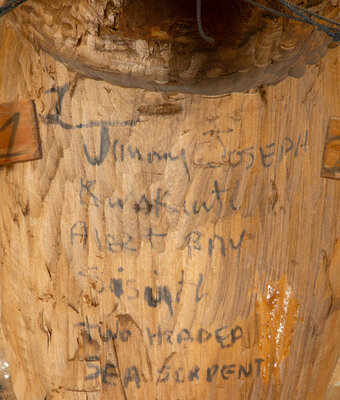 1
Jimmy Joseph
Kwakiutl
Alert Bay
Sisiutl
Two Headed
Sea Serpent